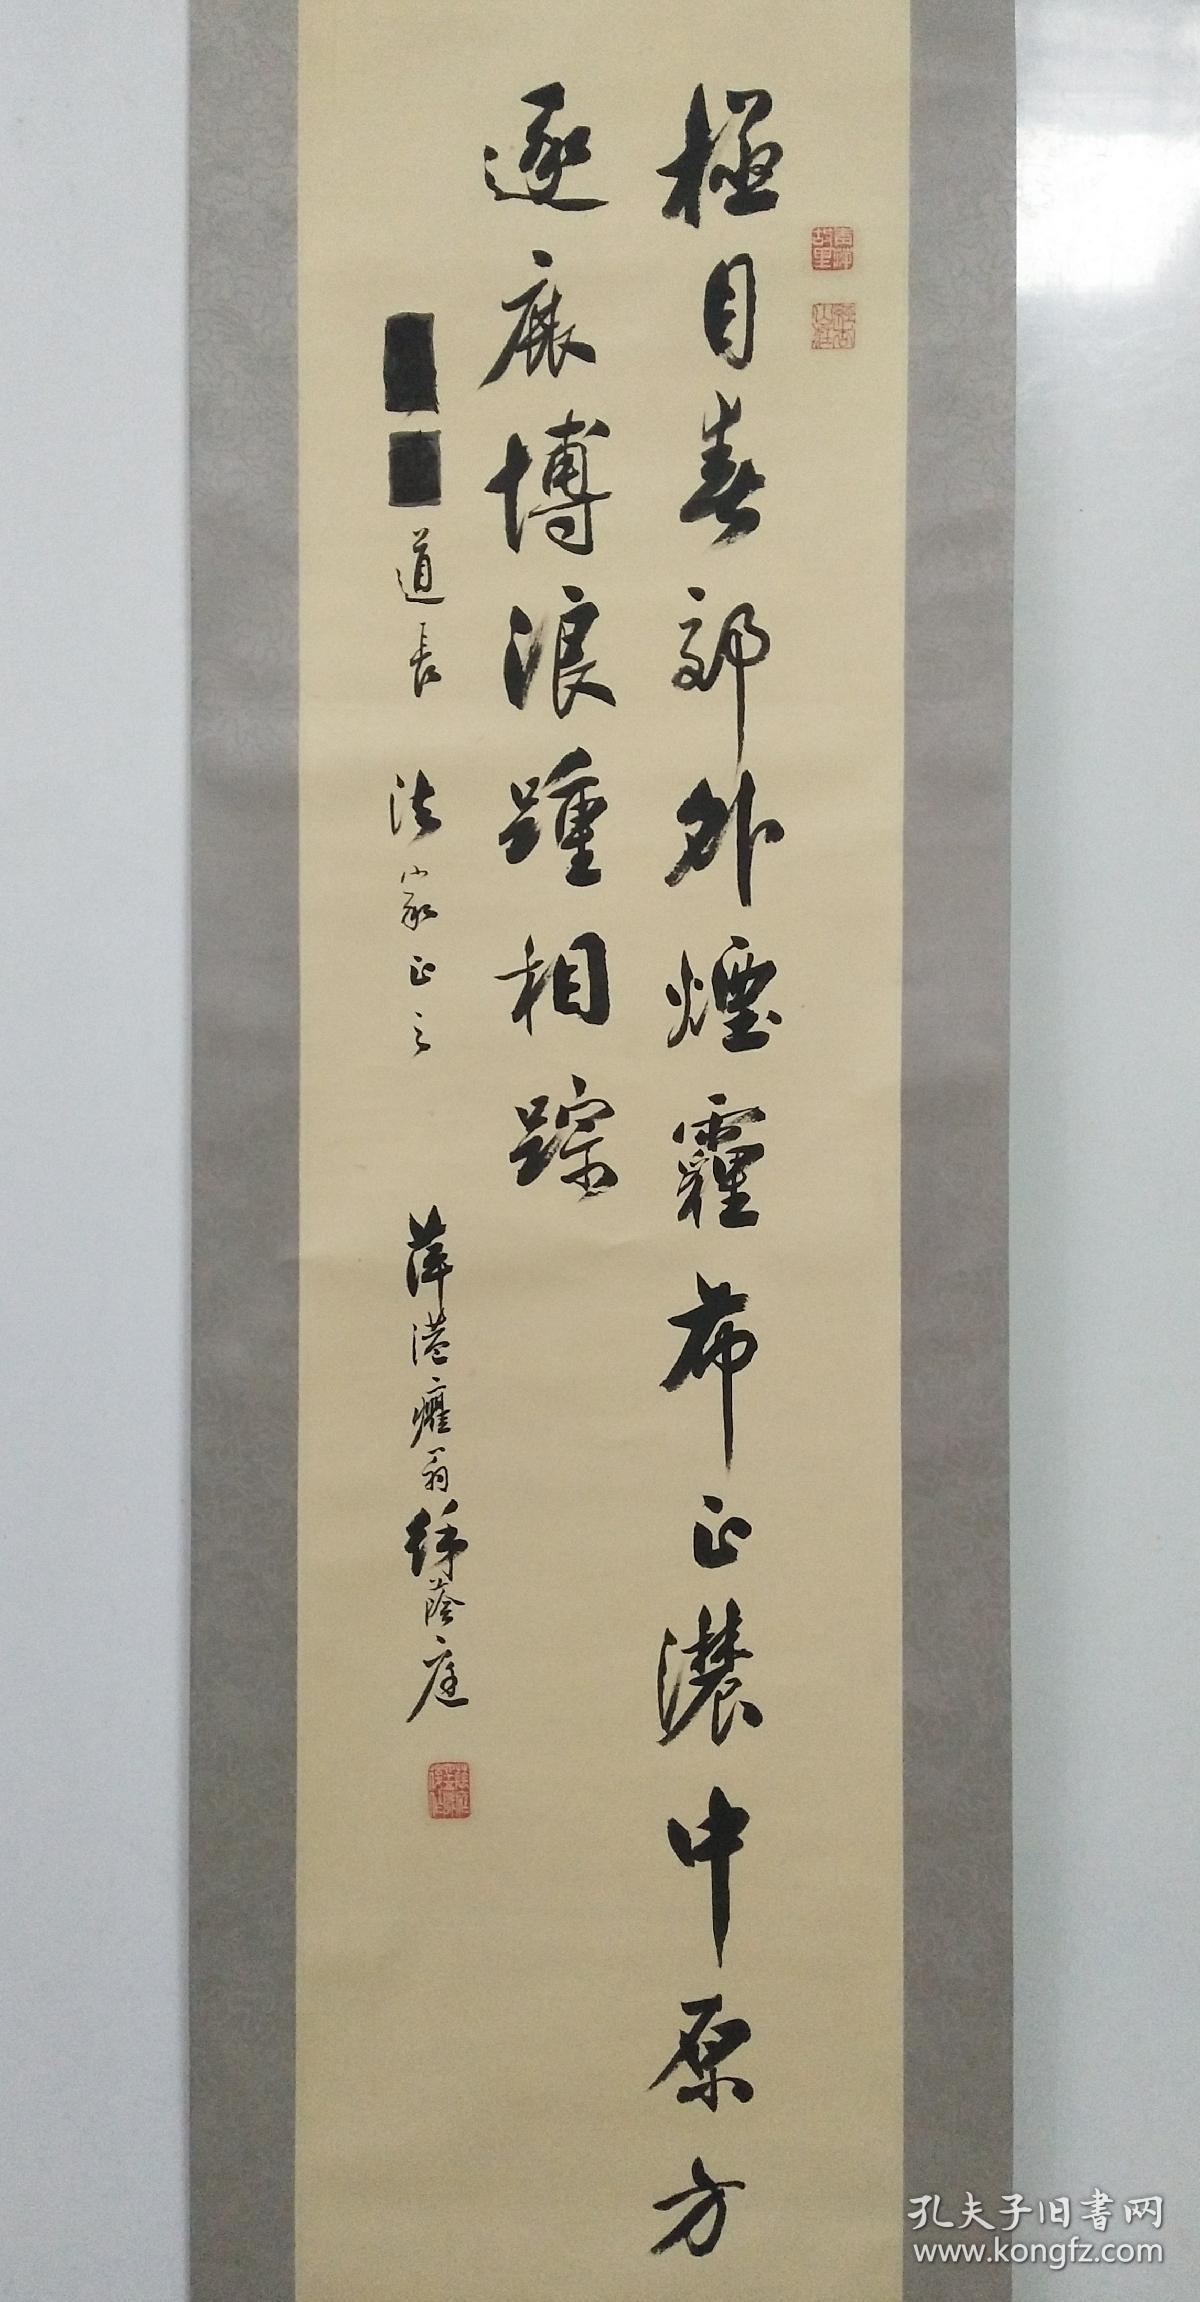 極目春郊外煙霾布正濃中原方
逐鹿博浪踵相踪
道長 法家正之 萍港癯翁 蔭庭
孔夫子旧书网
www.kongfz.com